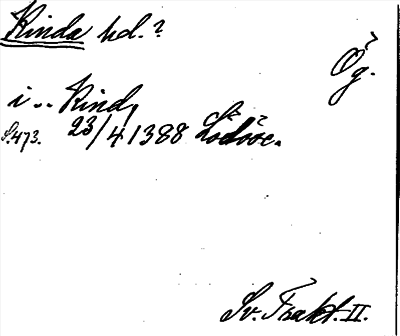 Kinda hd.?
Ög.
i .. Kind,
S.473. 23/4 1388 Lödöse.
Sv. Trakt. II.